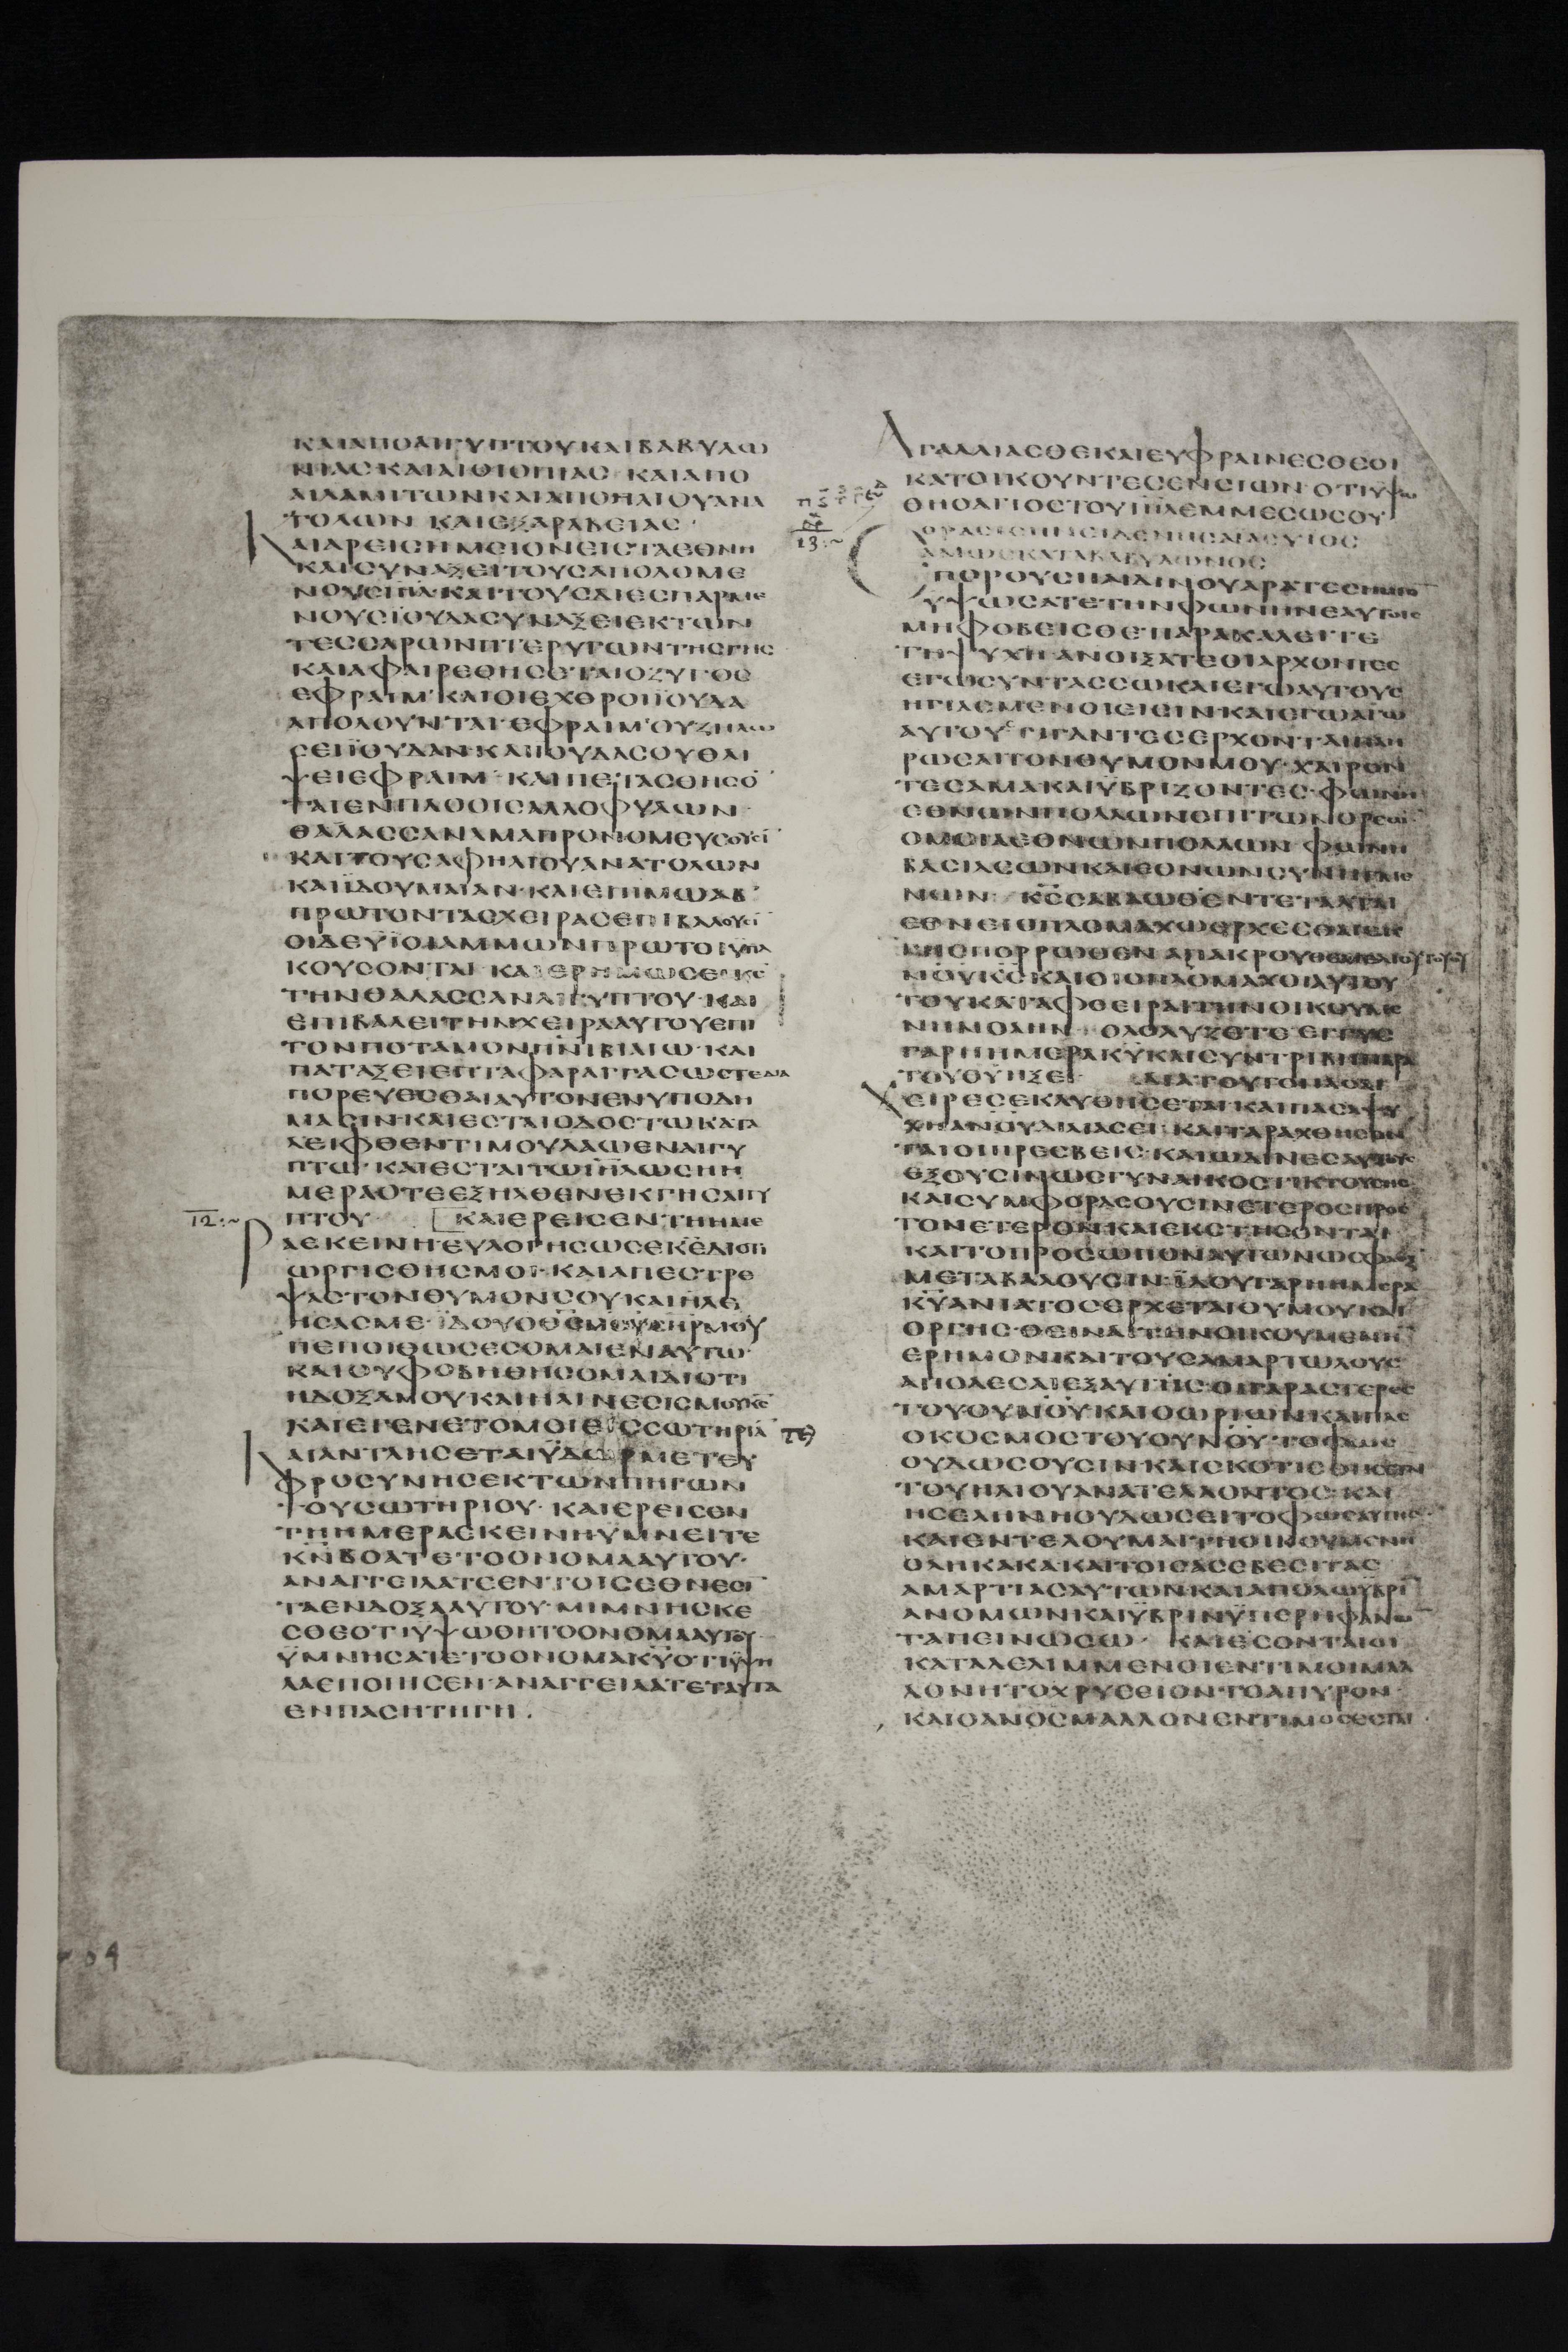 ΚΑΙΑΠΟΑΙΓΥΠΤΟΥΚΑΙΒΑΒΥΛΩ
ΝΙΑΣ·ΚΑΙΑΙΘΙΟΠΙΑΣ ΚΑΙΑΠΟ
ΑΙΛΑΜΙΤΩΝΚΑΙΑΠΟΗΛΙΟΥΑΝΑ
ΤΟΛΩΝ ΚΑΙΕΞΑΡΑΒΕΙΑΣ·
ΚΑΙΑΡΕΙΣΗΜΕΙΟΝΕΙΣΤΑΕΘΝΗ
ΚΑΙΣΥΝΑΞΕΙΤΟΥΣΑΠΟΛΟΜΕ
ΝΟΥΣΙΗΛ·ΚΑΙΤΟΥΣΔΙΕΣΠΑΡΜΕ
ΝΟΥΣΪΟΥΔΑΣΥΝΑΞΕΙΕΚΤΩΝ
ΤΕΣΣΑΡΩΝΠΤΕΡΥΓΩΝΤΗΣΓΗΣ
ΚΑΙΑΦΑΙΡΕΘΗΣΕΤΑΙΟΖΥΓΟΣ
ΕΦΡΑΙΜ·ΚΑΙΟΙΕΧΘΡΟΙΪΟΥΔΑ
ΑΠΟΛΟΥΝΤΑΙ·ΕΦΡΑΙΜ'ΟΥΖΗΛΩ
ΣΕΙΪΟΥΔΑΝ·ΚΑΙΪΟΥΔΑΣΟΥΘΛΙ
ΨΕΙΕΦΡΑΙΜ· ΚΑΙΠΕΤΑΣΘΗΣΟ
ΤΑΙΕΝΠΛΟΙΟΙΣΑΛΛΟΦΥΛΩΝ
ΘΑΛΑΣΣΑΝΑΜΑΠΡΟΝΟΜΕΥΣΟΥΣΙ
ΚΑΙΤΟΥΣΑΦΗΛΙΟΥΑΝΑΤΟΛΩΝ
ΚΑΙΪΔΟΥΜΑΙΑΝ·ΚΑΙΕΠΙΜΩΑΒ
ΠΡΩΤΟΝΤΑΣΧΕΙΡΑΣΕΠΙΒΑΛΟΥΣΙ
ΟΙΔΕΥΪΟΙΑΜΜΩΝΠΡΩΤΟΙΫΠΑ
ΚΟΥΣΟΝΤΑΙ ΚΑΙΕΡΗΜΩΣΕΙΚΣ
ΤΗΝΘΑΛΑΣΣΑΝΑΙΓΥΠΤΟΥ·ΚΑΙ
ΕΠΙΒΑΛΕΙΤΗΝΧΕΙΡΑΑΥΤΟΥΕΠΙ
ΤΟΝΠΟΤΑΜΟΝΠΝΙΒΙΑΙΩ·ΚΑΙ
ΠΑΤΑΞΕΙΕΠΤΑΦΑΡΑΓΓΑΣΩΣΤΕΔΙΑ
ΠΟΡΕΥΕΣΘΑΙΑΥΤΟΝΕΝΥΠΟΔΗ
ΜΑΣΙΝ·ΚΑΙΕΣΤΑΙΟΔΟΣΤΩΚΑΤΑ
ΛΕΙΦΘΕΝΤΙΜΟΥΛΑΩΕΝΑΙΓΥ
ΠΤΩ· ΚΑΙΕΣΤΑΙΤΩΙΗΛΩΣΗΗ
ΜΕΡΑΟΤΕΕΞΗΛΘΕΝΕΚΓΗΣΑΙΓΥ
ΠΤΟΥ· ΚΑΙΕΡΕΙΣΕΝΤΗΗΜΕ
ΡΑΕΚΕΙΝΗ·ΕΥΛΟΓΗΣΩΣΕΚΕΔΙΟΤΙ
ΩΡΓΙΣΘΗΣΜΟΙ·ΚΑΙΑΠΕΣΤΡΕ
ΨΑΣΤΟΝΘΥΜΟΝΣΟΥΚΑΙΗΛΕ
ΗΣΑΣΜΕ·ΪΔΟΥΟΘΣΜΟΥΣΗΡΜΟΥ
ΠΕΠΟΙΘΩΣΕΣΟΜΑΙΕΠΑΥΤΩ·
ΚΑΙΟΥΦΟΒΗΘΗΣΟΜΑΙΔΙΟΤΙ
ΗΔΟΞΑΜΟΥΚΑΙΗΑΙΝΕΣΙΣΜΟΥΚΣ
ΚΑΙΕΓΕΝΕΤΟΜΟΙΕΙΣΣΩΤΗΡΙΑ
ΚΑΙΑΝΤΛΗΣΕΤΑΙΫΔΩΡΜΕΤΕΥ
ΦΡΟΣΥΝΗΣΕΚΤΩΝΠΗΓΩΝ
ΤΟΥΣΩΤΗΡΙΟΥ· ΚΑΙΕΡΕΙΣΕΝ
ΤΗΗΜΕΡΑΕΚΕΙΝΗΫΜΝΕΙΤΕ
ΚΝΒΟΑΤΕΤΟΟΝΟΜΑΑΥΤΟΥ·
ΑΝΑΓΓΕΙΛΑΤΕΕΝΤΟΙΣΕΘΝΕΣΙ
ΤΑΕΝΔΟΞΑΑΥΤΟΥ·ΜΙΜΝΗΣΚΕ
ΣΘΕΟΤΙΥΨΩΘΗΤΟΟΝΟΜΑΑΥΤΟΥ
ΫΜΝΗΣΑΤΕΤΟΟΝΟΜΑΚΥΟΤΙΫΨΗ
ΛΑΕΠΟΙΗΣΕΝ·ΑΝΑΓΓΕΙΛΑΤΕΤΑΥΤΑ
ΕΝΠΑΣΗΤΗΓΗ.
ΑΓΑΛΛΙΑΣΘΕΚΑΙΕΥΦΡΑΙΝΕΣΘΕΟΙ
ΚΑΤΟΙΚΟΥΝΤΕΣΕΝΣΙΩΝ·ΟΤΙΥΨΩ
ΘΗΟΑΓΙΟΣΤΟΥΙΗΛΕΜΜΕΣΩΣΟΥ
ΟΡΑΣΙΣΗΝΕΙΔΕΝΗΣΑΙΑΣΥΙΟΣ
ΑΜΩΣΚΑΤΑΒΑΒΥΛΩΝΟΣ
ΥΨΩΣΑΤΕΤΗΝΦΩΝΗΝΕΑΥΤΟΙΣ
ΜΗΦΟΒΕΙΣΘΕ·ΠΑΡΑΚΑΛΕΙΤΕ
ΤΗΨΥΧΗΑΝΟΙΞΑΤΕΟΙΑΡΧΟΝΤΕΣ
ΕΓΩΣΥΝΤΑΣΣΩΚΑΙΕΓΩΑΥΤΟΥΣ
ΗΓΙΑΣΜΕΝΟΙΕΙΣΙΝ·ΚΑΙΕΓΩΑΓΩ
ΑΥΤΟΥΣΓΙΓΑΝΤΕΣΕΡΧΟΝΤΑΙΠΛΗ
ΡΩΣΑΙΤΟΝΘΥΜΟΝΜΟΥ·ΧΑΙΡΟΝ
ΤΕΣΑΜΑΚΑΙΫΒΡΙΖΟΝΤΕΣ·ΦΩΝΗ
ΕΘΝΩΝΠΟΛΛΩΝΕΠΙΤΩΝΟΡΕΩΝ
ΟΜΟΙΑΕΘΝΩΝΠΟΛΛΩΝ ΦΩΝΗ
ΒΑΣΙΛΕΩΝΚΑΙΕΘΝΩΝΣΥΝΗΓΜΕ
ΝΩΝ· ΚΣΣΑΒΑΩΘΕΝΤΕΤΑΛΤΑΙ
ΕΘΝΕΙΟΠΛΟΜΑΧΩΕΡΧΕΣΘΑΙΕΚ
ΜΟΥΚΣΚΑΙΟΙΟΠΛΟΜΑΧΟΙΑΥΤΟΥ
ΤΟΥΚΑΤΑΦΘΕΙΡΑΙΤΗΝΟΙΚΟΥΜΕ
ΝΗΝΟΛΗΝ ΟΛΟΛΥΖΕΤΕ·ΕΓΓΥΣ
ΓΑΡΗΗΜΕΡΑΚΥΚΑΙΣΥΝΤΡΙΒΗΠΑΡΑ
ΤΟΥΘΥΗΞΕΙ· ΔΙΑΤΟΥΤΟΠΑΣΑΙ
ΧΕΙΡΕΣΕΚΛΥΘΗΣΕΤΑΙ·ΚΑΙΠΑΣΑΨΥ
ΧΗΑΝΟΥΔΙΛΙΑΣΕΙ·ΚΑΙΤΑΡΑΧΘΗΣΟΝ
ΤΑΙΟΙΠΡΕΣΒΕΙΣ·ΚΑΙΩΔΙΝΕΣΑΥΤΟΥΣ
ΕΞΟΥΣΙΝΩΣΓΥΝΑΙΚΟΣΤΙΚΤΟΥΣΗΣ
ΚΑΙΣΥΜΦΟΡΑΣΟΥΣΙΝΕΤΕΡΟΣΠΡΟΣ
ΤΟΝΕΤΕΡΟΝ·ΚΑΙΕΚΣΤΗΣΟΝΤΑΙ
ΚΑΙΤΟΠΡΟΣΩΠΟΝΑΥΤΩΝΩΣΦΛΟΞ
ΜΕΤΑΒΑΛΟΥΣΙΝ·ΪΔΟΥΓΑΡΗΗΜΕΡΑ
ΚΥΑΝΙΑΤΟΣΕΡΧΕΤΑΙΘΥΜΟΥΚΑΙ
ΟΡΓΗΣ·ΘΕΙΝΑΙΤΗΝΟΙΚΟΥΜΕΝΗ
ΕΡΗΜΟΝΚΑΙΤΟΥΣΑΜΑΡΤΩΛΟΥΣ
ΑΠΟΛΕΣΑΙΕΞΑΥΤΗΣ·ΟΙΓΑΡΑΣΤΕΡΕΣ
ΤΟΥΟΥΝΟΥΚΑΙΟΩΡΙΩΝΚΑΙΠΑΣ
ΟΚΟΣΜΟΣΤΟΥΟΥΝΟΥ·ΤΟΦΩΣ
ΟΥΔΩΣΟΥΣΙΝ·ΚΑΙΣΚΟΤΙΣΘΗΣΕΤΑΙ
ΤΟΥΗΛΙΟΥΑΝΑΤΕΛΛΟΝΤΟΣ·ΚΑΙ
ΗΣΕΛΗΝΗΟΥΔΩΣΕΙΤΟΦΩΣΑΥΤΗΣ·
ΚΑΙΕΝΤΕΛΟΥΜΑΙΤΗΟΙΚΟΥΜΕΝΗ
ΟΛΗΚΑΚΑ·ΚΑΙΤΟΙΣΑΣΕΒΕΣΙΤΑΣ
ΑΜΑΡΤΙΑΣΑΥΤΩΝΚΑΙΑΠΟΛΩΫΒΡΙ
ΑΝΟΜΩΝΚΑΙΫΒΡΙΝΫΠΕΡΗΦΑΝΩ
ΤΑΠΕΙΝΩΣΩ· ΚΑΙΕΣΟΝΤΑΙΟΙ
ΚΑΤΑΛΕΛΙΜΜΕΝΟΙΕΝΤΙΜΟΙΜΑΛ
ΛΟΝΗΤΟΧΡΥΣΕΙΟΝΤΟΑΠΥΡΟΝ·
ΚΑΙΟΑΝΟΣΜΑΛΛΟΝΕΝΤΙΜΟΣΕΣΤΑΙ